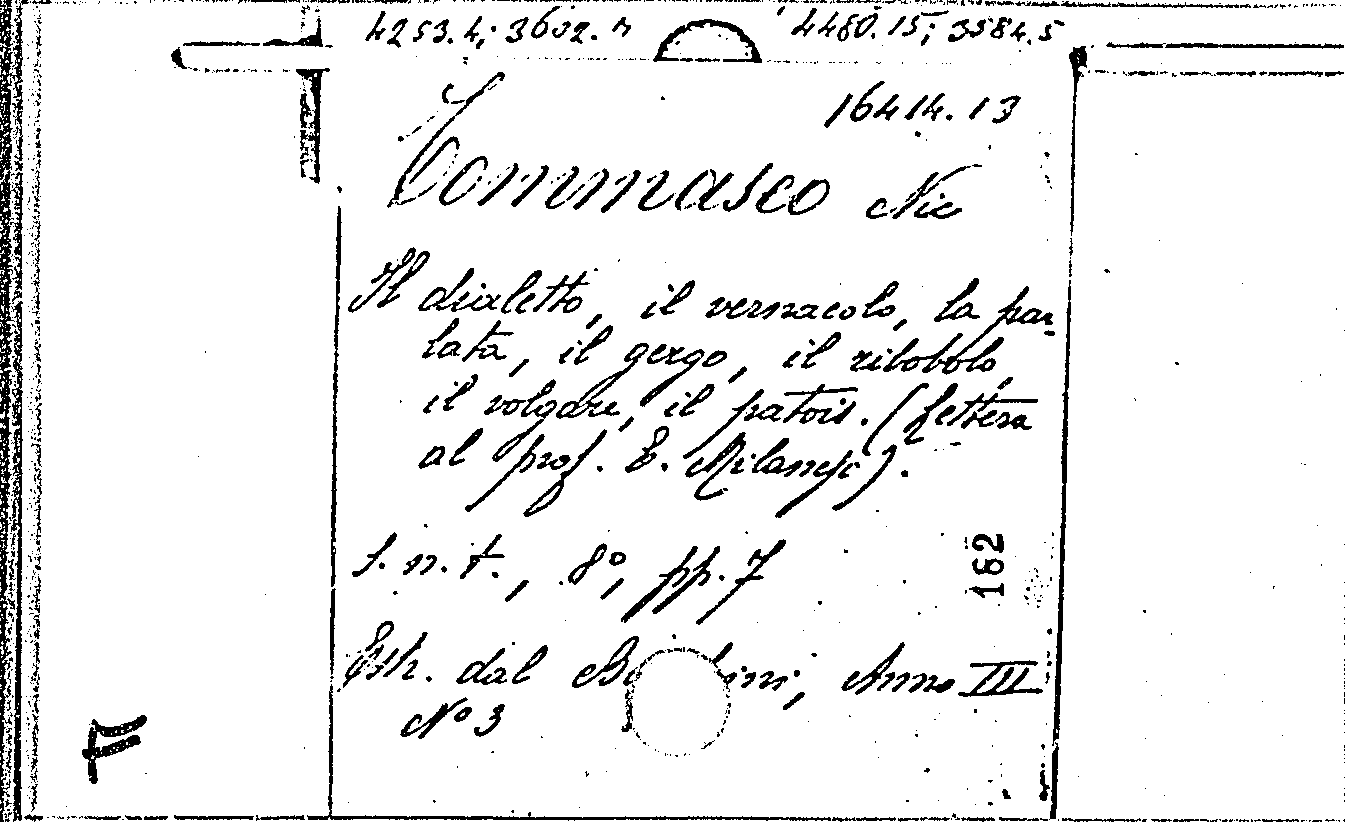 4253.4; 3602.n 4480.15; 3584.5
16414.13
Tommaseo Nic
Il dialetto, il vernacolo, la par-
lata, il gergo, il ribobolo,
il volgare, il patois. (Lettera
al prof. E. Milanesi).
S.n.t., 8°, pp. 7
162
Estr. dal Anno III
N° 3
F